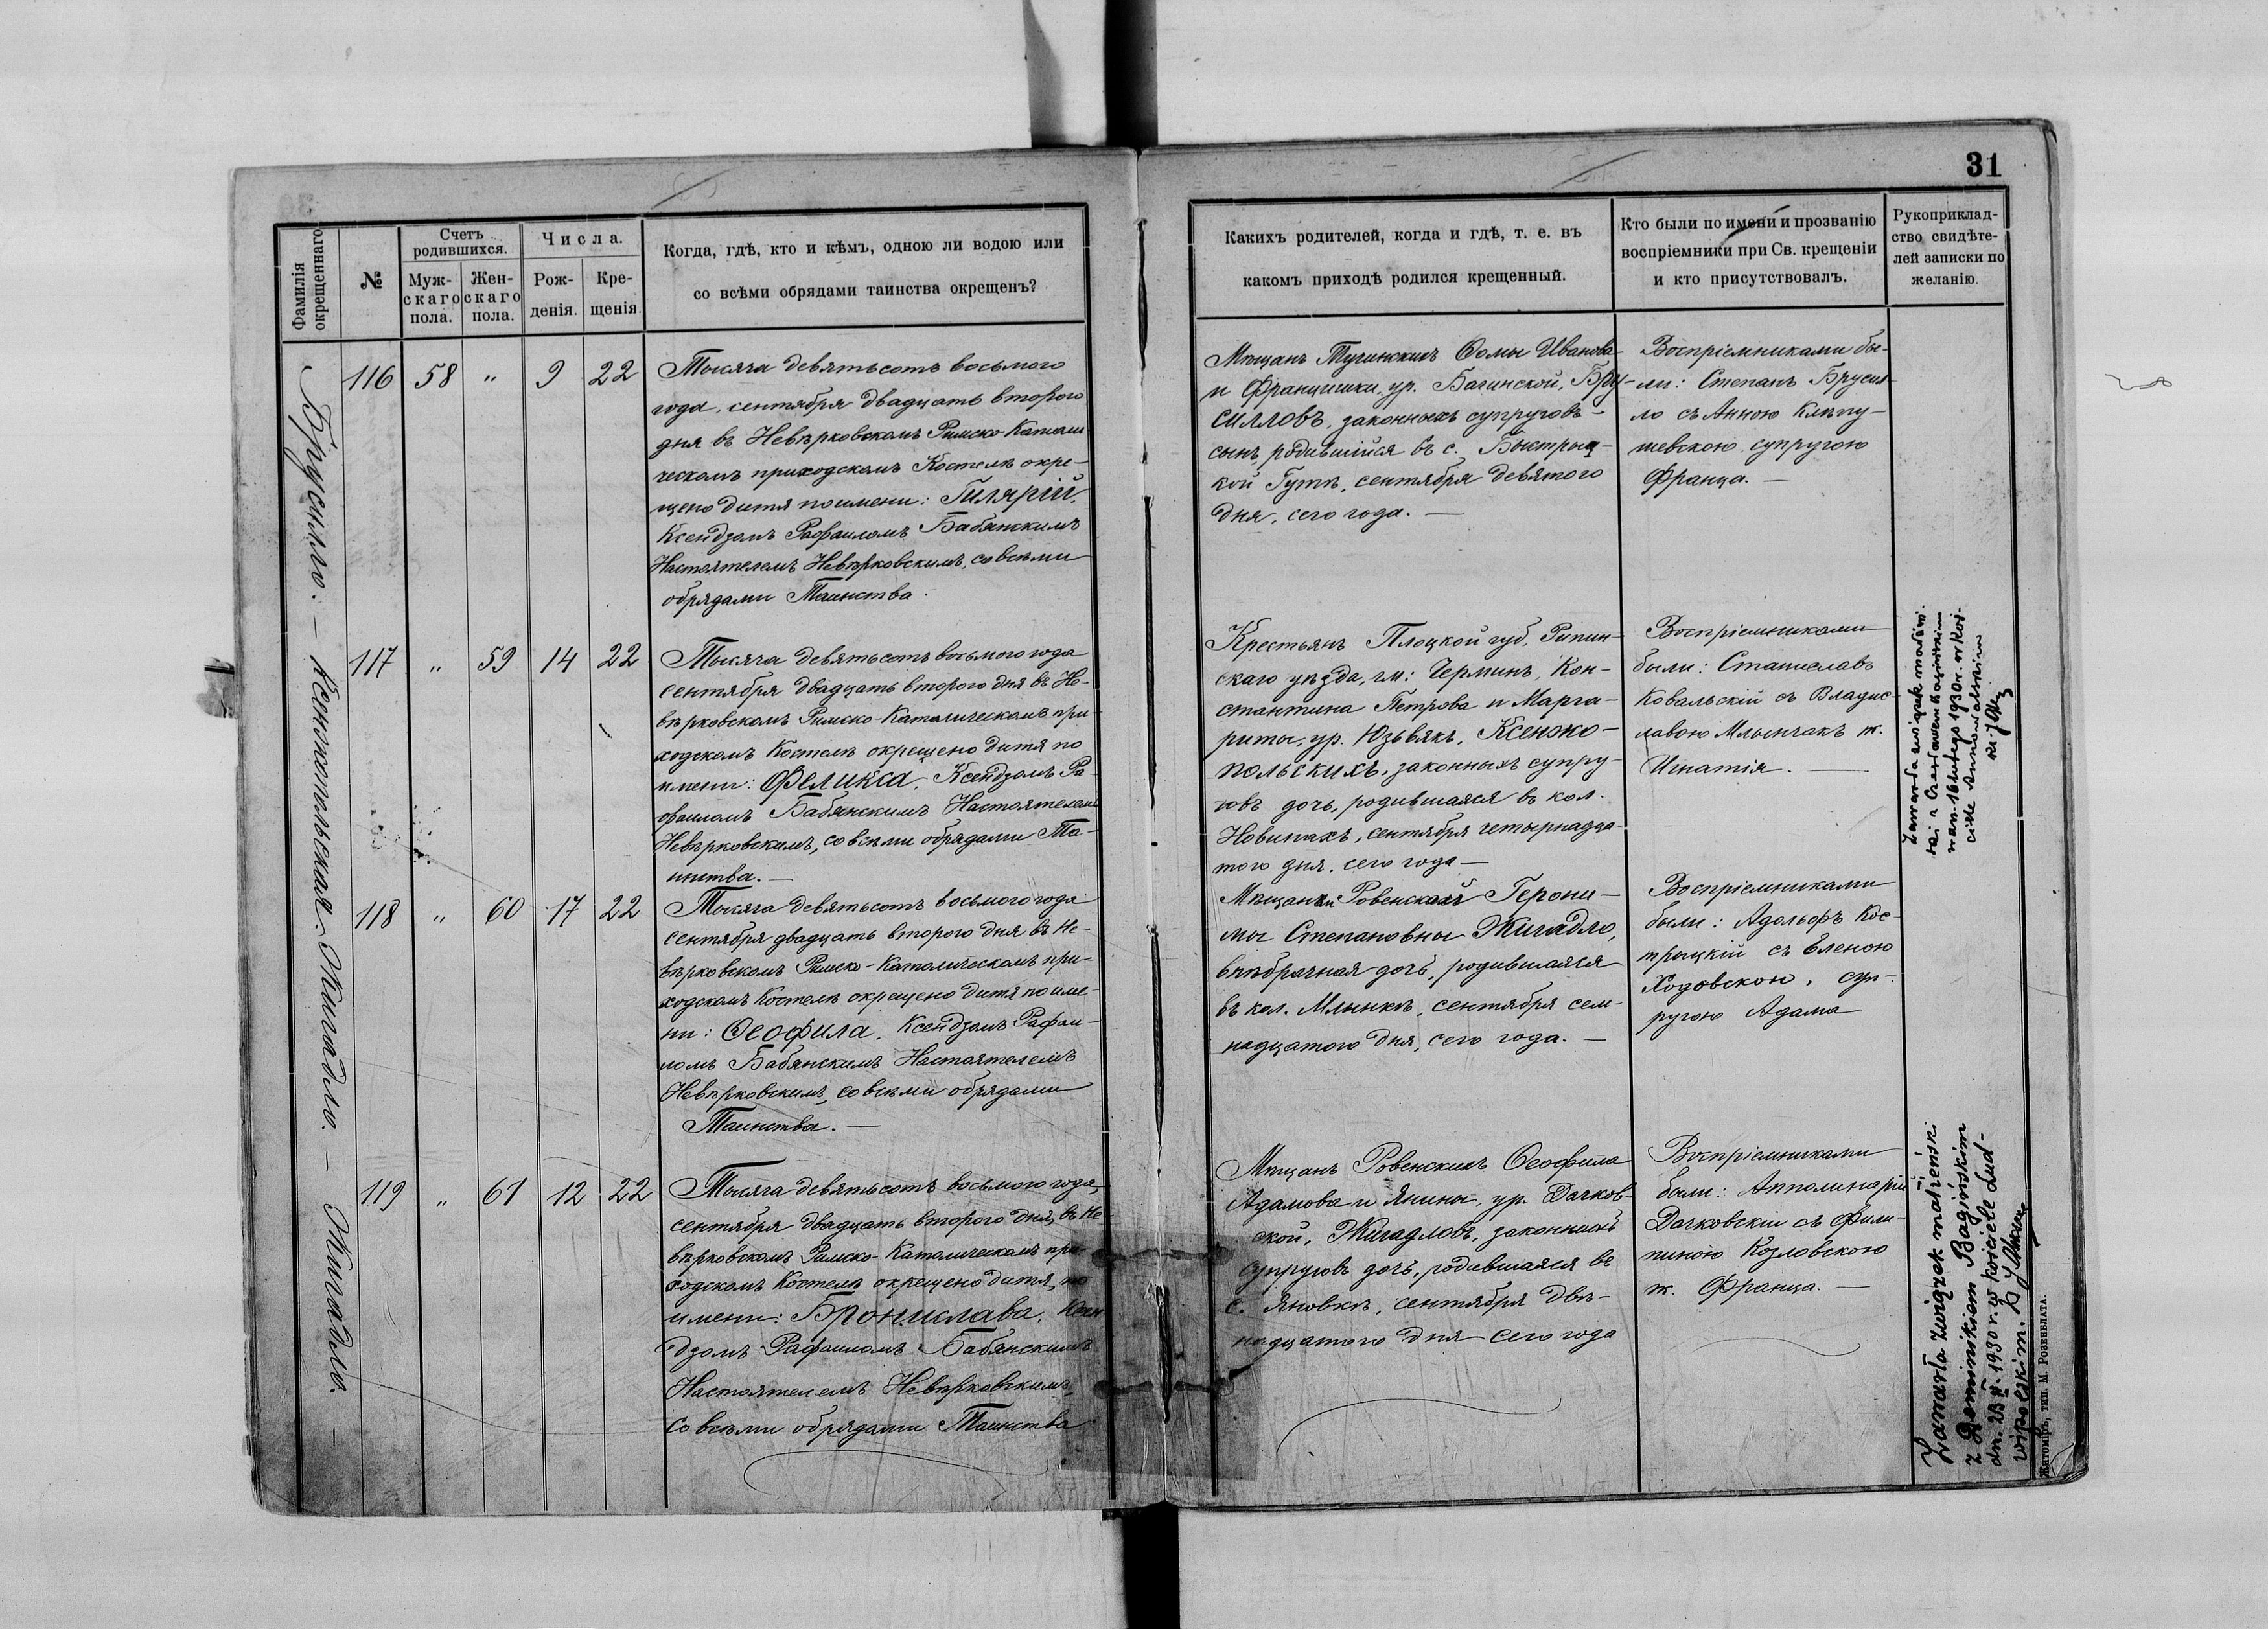 31
Фамилія
окрещеннаго
№
Счетъ
родившихся.
Муж-
скаго
пола.
Жен-
скаго
пола.
Числа.
Рож-
денія.
Кре-
щенія.
Когда, гдѣ, кто и кѣмъ, одною ли водою или
со всѣми обрядами таинства окрещенъ?
Какихъ родителей, когда и гдѣ, т. е. въ
какомъ приходѣ родился крещенный.
Кто были по имени и прозванію
воспріемники при Св. крещеніи
и кто присутствовалъ.
Рукоприклад-
ство свидѣте-
лей записки по
желанію.
Брусилло. —
116 58 " 9 22
Тысяча девятьсотъ восьмого
года, сентября двадцать второго
дня въ Невѣрковскомъ Римско-Католи-
ческомъ приходскомъ Костелѣ окре-
щено дитя по имени: Гилярій,
Ксендзомъ Рафаиломъ Бабянскимъ
Настоятелемъ Невѣрковскимъ, со всѣми
обрядами Таинства.
Мѣщанъ Тучинскихъ Ѳомы Иванова
и Францишки, ур. Багинской, Бру-
силловъ, законныхъ супруговъ —
сынъ, родившійся въ с. Быстриц-
кой Гутѣ, сентября девятого
дня, сего года. —
Воспріемниками бы-
ли: Степанъ Брусил-
ло съ Анною
супругою
Франца. —
Ксенжопольская. —
117 " 59 14 22
Тысяча девятьсотъ восьмого года
сентября двадцать второго дня въ Не-
вѣрковскомъ Римско-Католическомъ при-
ходскомъ Костелѣ окрещено дитя по
имени: Феликса, Ксендзомъ Ра-
фаиломъ Бабянскимъ Настоятелемъ
Невѣрковскимъ, со всѣми обрядами Та-
инства. —
Крестьянъ Плоцкой губ. Рипин-
скаго уѣзда, гм: Черминъ, Кон-
стантина Петрова и Марга-
риты, ур. Юзьвякъ, Ксенжо-
польскихъ, законныхъ супру-
говъ дочь, родившаяся въ кол.
Новинахъ, сентября четырнадца-
того дня, сего года —
Воспріемниками
были: Станиславъ
Ковальскій съ Владис-
лавою Млынчакъ ж.
Игнатія. —
Zawarła związek małżeń-
ski z
w dn. 16 lutego 1930 r. w koś-
ciele
Жигадло. —
118 " 60 17 22
Тысяча девятьсотъ восьмого года
сентября двадцать второго дня въ Не-
вѣрковскомъ Римско-Католическомъ при-
ходскомъ Костелѣ окрещено дитя по име-
ни: Ѳеофила, Ксендзомъ Рафаи-
ломъ Бабянскимъ Настоятелемъ
Невѣрковскимъ, со всѣми обрядами
Таинства. —
Мѣщанки Ровенской Герони-
мы Степановны Жигадло,
внѣбрачная дочь, родившаяся
въ кол. Млынкѣ, сентября сем-
надцатого дня, сего года. —
Воспріемниками
были: Адольфъ Кос-
трицкій съ Еленою
Ходовскою, суп-
ругою Адама
Жигадло. —
119 " 61 12 22
Тысяча девятьсотъ восьмого года,
сентября двадцать второго дня, въ Не-
вѣрковскомъ Римско-Католическомъ при-
ходскомъ Костелѣ окрещено дитя, по
имени: Бронислава, Ксен-
дзомъ Рафаиломъ Бабянскимъ
Настоятелемъ Невѣрковскимъ,
со всѣми обрядами Таинства
Мѣщанъ Ровенскихъ Ѳеофила
Адамова и Янины, ур. Дачков-
ской, Жигадловъ, законныхъ
супруговъ дочь, родившаяся въ
с. Яновкѣ, сентября двѣ-
надцатого дня сего года
Воспріемниками
были: Апполинарій
Дачковскій съ Фили-
пиною Козловскою
ж. Франца. —
Zawarła związek małżeński
z Dominikiem Bagińskim
dn. 23 II. 1930 r. w kościele Lud-
wipolskim.
Житомиръ, тип. М. Розенблата.